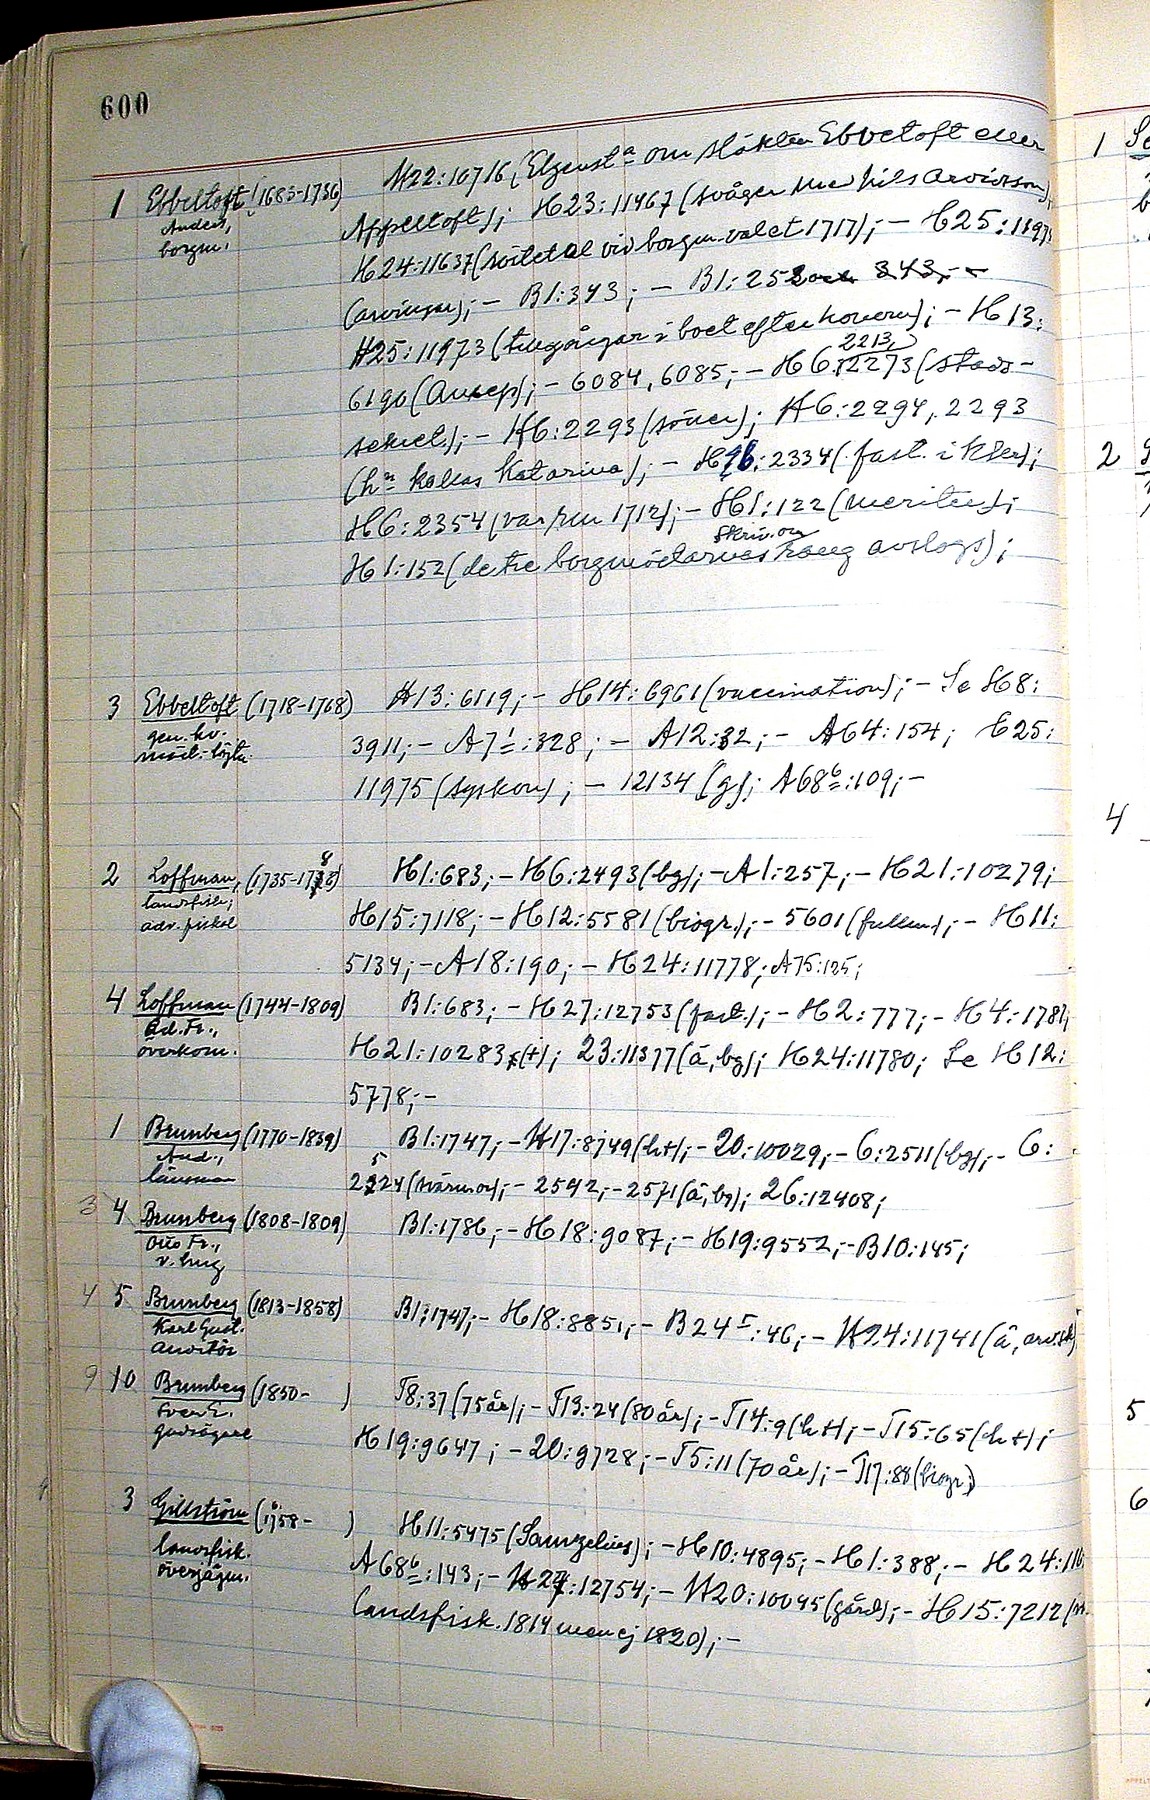 600
1 Ebbeltoft (1683-1736) H22:10716 (Elgenst.a om släkten Ebbetoft eller
Anders, Appeltoft); H23:11467 (svåger med Nils Arvidsson);
borgm. H24:11637 (röstetal vid borgm.valet 1717); - H25:1197
(arvingar); - B1:343; - B1:252 och 343; -
H25:11973 (tillgångar i boet efter honom); - H13:
2213,
6190 (Ansep); - 6084, 6085; - H6:2273 (stads-
sekret.); - H6:2293 (söner); H6:2294, 2293
(hn kallas Katarina); - H6:2334 (fast. i K); 
H6:2354 (var 1712); - H1:122 (meriter);
skriv. om
H1:152 (de tre borgmästarnas rang avslogs);
3 Ebbeltoft (1718-1768) H13:6119; - H14:6961 (vaccination); - Se H8:
gen. kv.
3911; - A71:328; - A12:32; - A64:154; H25:
mäst.-löjtn.
11975 (syskon); - 12134 (g); A68b:109; -
2 Loffman, (1735-178) H1:683; - H6:2493 (bg); - A1:257; - H21:10279;
landsfisk;
adv. fiskal H15:7118; - H12:5581 (biogr.); - 5601 (fullm); - H11:
5134; - A18:190; - H24:11778; A75:125;
4 Loffman (1744-1809) B1:683; - H27:12753 (fast.); - H2:777; - H4:178
Ad. Fr.,
överkom. H21:10283 (+); 23:11377 (å, bg); H24:11780; Se H12:
5778; -
1 Brunberg (1770-1839) B1:1747; - H17:8749 (h+); - 20:10029; - 6:2511 (bg); - 6:
And., 5
länsman 2224 (svärmor); - 2542; - 2571 (å, bg); 26:12408;
3 4 Brunberg (1808-1809) B1:1786; - H18:9087; - H19:9552; - B10:145;
Otto Fr.,
v. hug
4 5 Brunberg (1813-1858) B1:1747; - H18:8851; - B24I:46; - H24:11741 (å, arvsk)
Karl Gust.
auditör
9 10 Brunberg (1850- ) T8:37 (75 år); - T13:24 (80 år); - T14:9 (h+); - T15:65 (h+);
Sven E.
godsägare H19:9647; - 20:9728; - T5:11 (70 år); - T17:88 (biogr.)
3 Gillström (1758- ) H11:5475 (Samzelius); - H10:4895; - H1:388; - H24:116
landsfisk.
överjägm. A68b:143; - H27:12754; - H20:10045 (gård); - H15:7212
landsfisk. 1814 men ej 1820); -
1
2
4
5
6